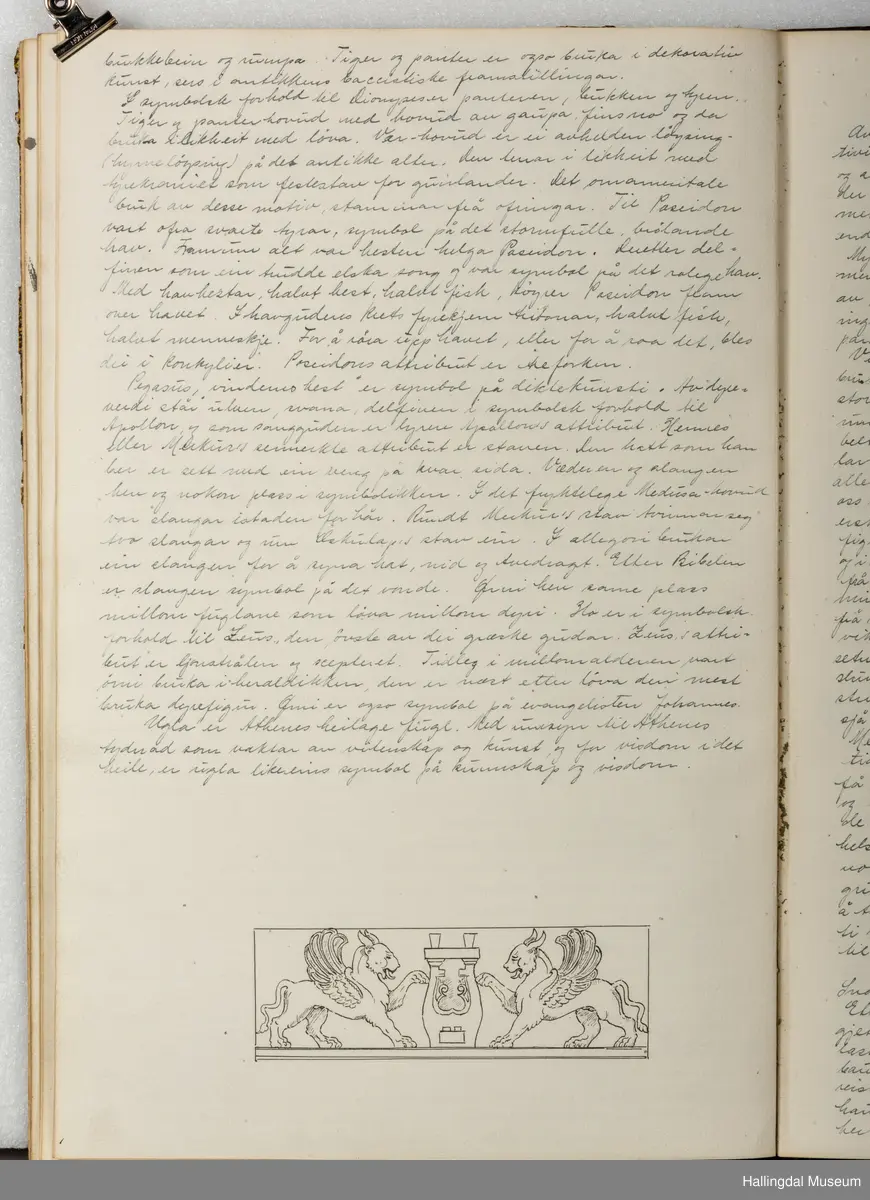 bukkebein og rumpa. Tiger og panter er ogso bruka i dekorativ
kunst, sers i antikkens baccistiske framstillingar.
I symbolsk forhold til Dionyses er panteren, bukken og tyren.
Tiger og panter-hovud med hovud av gaupa, fins no og da
bruka i likheit med løva. Vær-hovud er ei avhelden løysing
(hyrneløysing) på det antikke alter. Den tenar i likheit med
tyrekraniet som festestav for guirlander. Det ornamentale
bruk av desse motiv, stammar frå ofringar. Til Poseidon
vart ofra svarte tyrar, symbol på det stormfulle, brølande
hav. Framum alt var hesten helga Poseidon. Deretter del-
finen som ein trudde elska song og var symbol på det rolege hav.
Med havhestar, halvt hest, halvt fisk, køyrer Poseidon fram
over havet. I havgudens krets fyrekjem tritonar, halvt fisk,
halvt menneskje. For å røra upp havet, eller for å roa det, bles
dei i konkylier. Poseidons attribut er treforken.
Pegasus, "vindens hest" er symbol på diktekunsti. Av dyre-
verdi står ulven, svana, delfinen i symbolsk forhold til
Apollon, og som songguden er lyren Apollons attribut. Hermes
eller Merkur's sermerkte attribut er staven. Den hatt som han
ber er sett med ein veng på kvar sida. Væderen og slangen
hev og nokon plass i symbolikken. I det fryktelege Medusa-hovud
var slangar istaden for hår. Rundt Merkur's stav tvinnar seg
tvo slangar og um Eskulap's stav ein. I allegori brukar
ein slangen for å syna hat, nid og tvedragt. Etter Bibelen
er slangen symbol på det vonde. Ørni hev same plass
millom fuglane som løva millom dyri. Ho er i symbolsk
forhold til Zeus, den øvste av dei græske gudar. Zeus's attri-
but er ljonstrålen og scepteret. Tidleg i millomalderen vart
örni bruka i heraldikken, den er næst etter løva den mest
bruka dyrefigur. Ørni er ogso symbol på evangelisten Johannes.
Ugla er Athenes heilage fugl. Med umsyn til Athenes
tydnad som vaktar av vitenskap og kunst, og for visdom i det
heile, er ugla likeeins symbol på kunnskap og visdom.
Hallingdal Museum